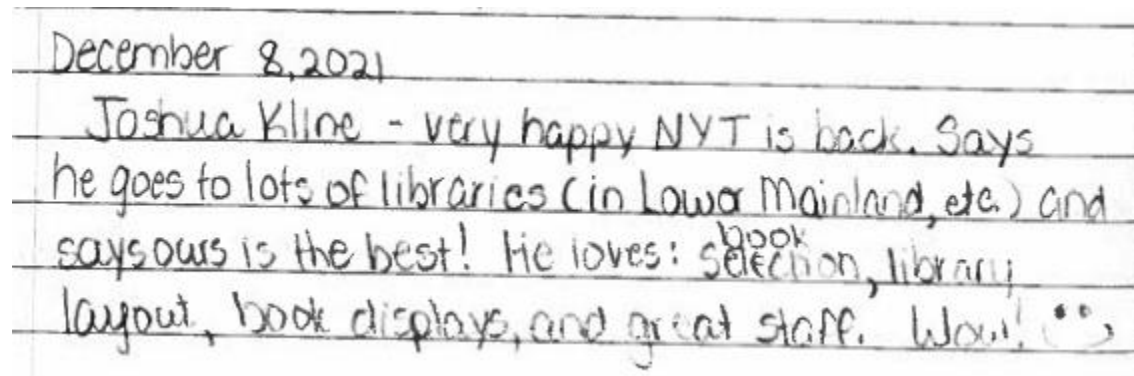 December 8, 2021
Joshua Kline - very happy NYT is back. Says
he goes to lots of libraries (in Lower Mainland, etc.) and
says ours is the best! He loves: book selection, library
layout, book displays, and great staff. Wow!